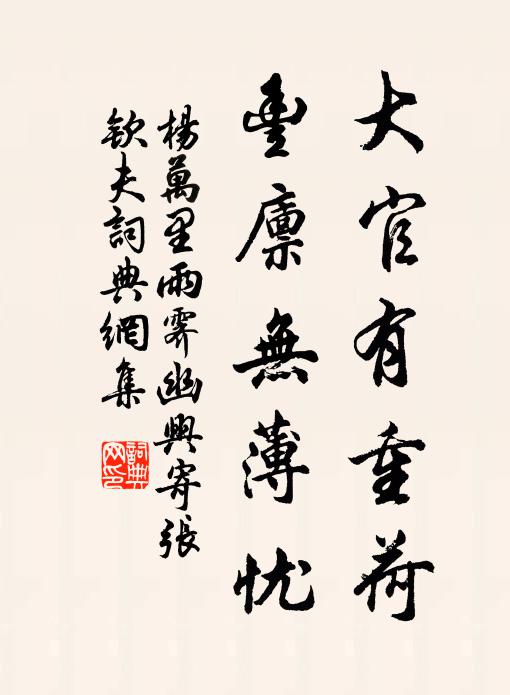 大官有重荷
豊廪無薄忧
楊萬里雨霽幽興寄張
欽夫詞典網集
詞典
网印